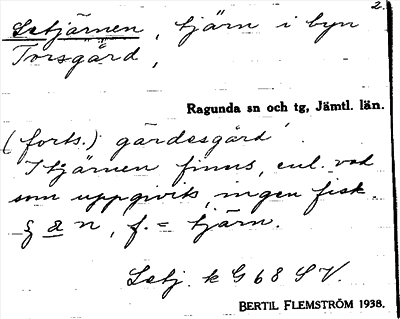 2.
Lstjärnen, tjärn i byn
Torsgård,
Ragunda sn och tg, Jämtl. län.
(forts.) gärdesgård'.
I tjärnen finns, enl. vad
som uppgivits, ingen fisk.
n, f. = tjärn.
k G 68 S V.
BERTIL FLEMSTRÖM 1938.